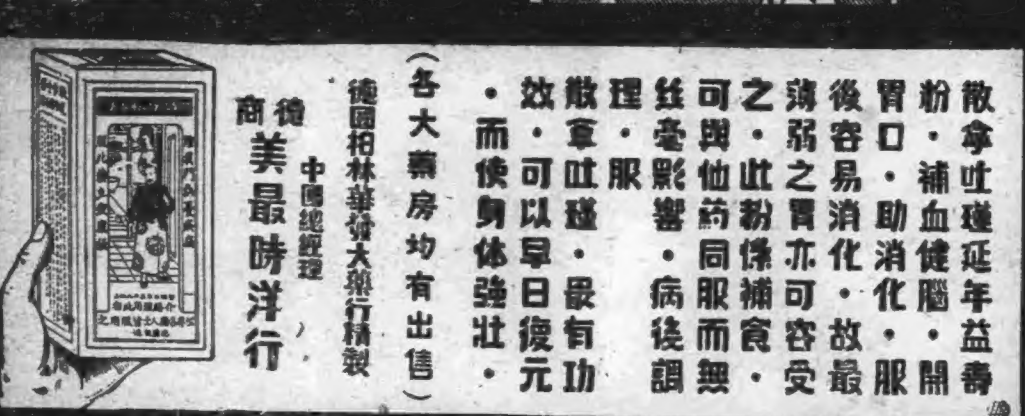 散拿吐瑾延年益壽
粉・補血健腦・開
胃口・助消化・服
後容易消化・故最
薄弱之胃亦可容受
之・此粉係補食・
可與他葯同服而無
丝毫影響・病後調
理・服
散拿吐瑾・最有功
效・可以早日復元
・而使身体強壯・
(各大藥房均有出售)
德國柏林華發大藥行精製
中國總經理
德商
美最時洋行